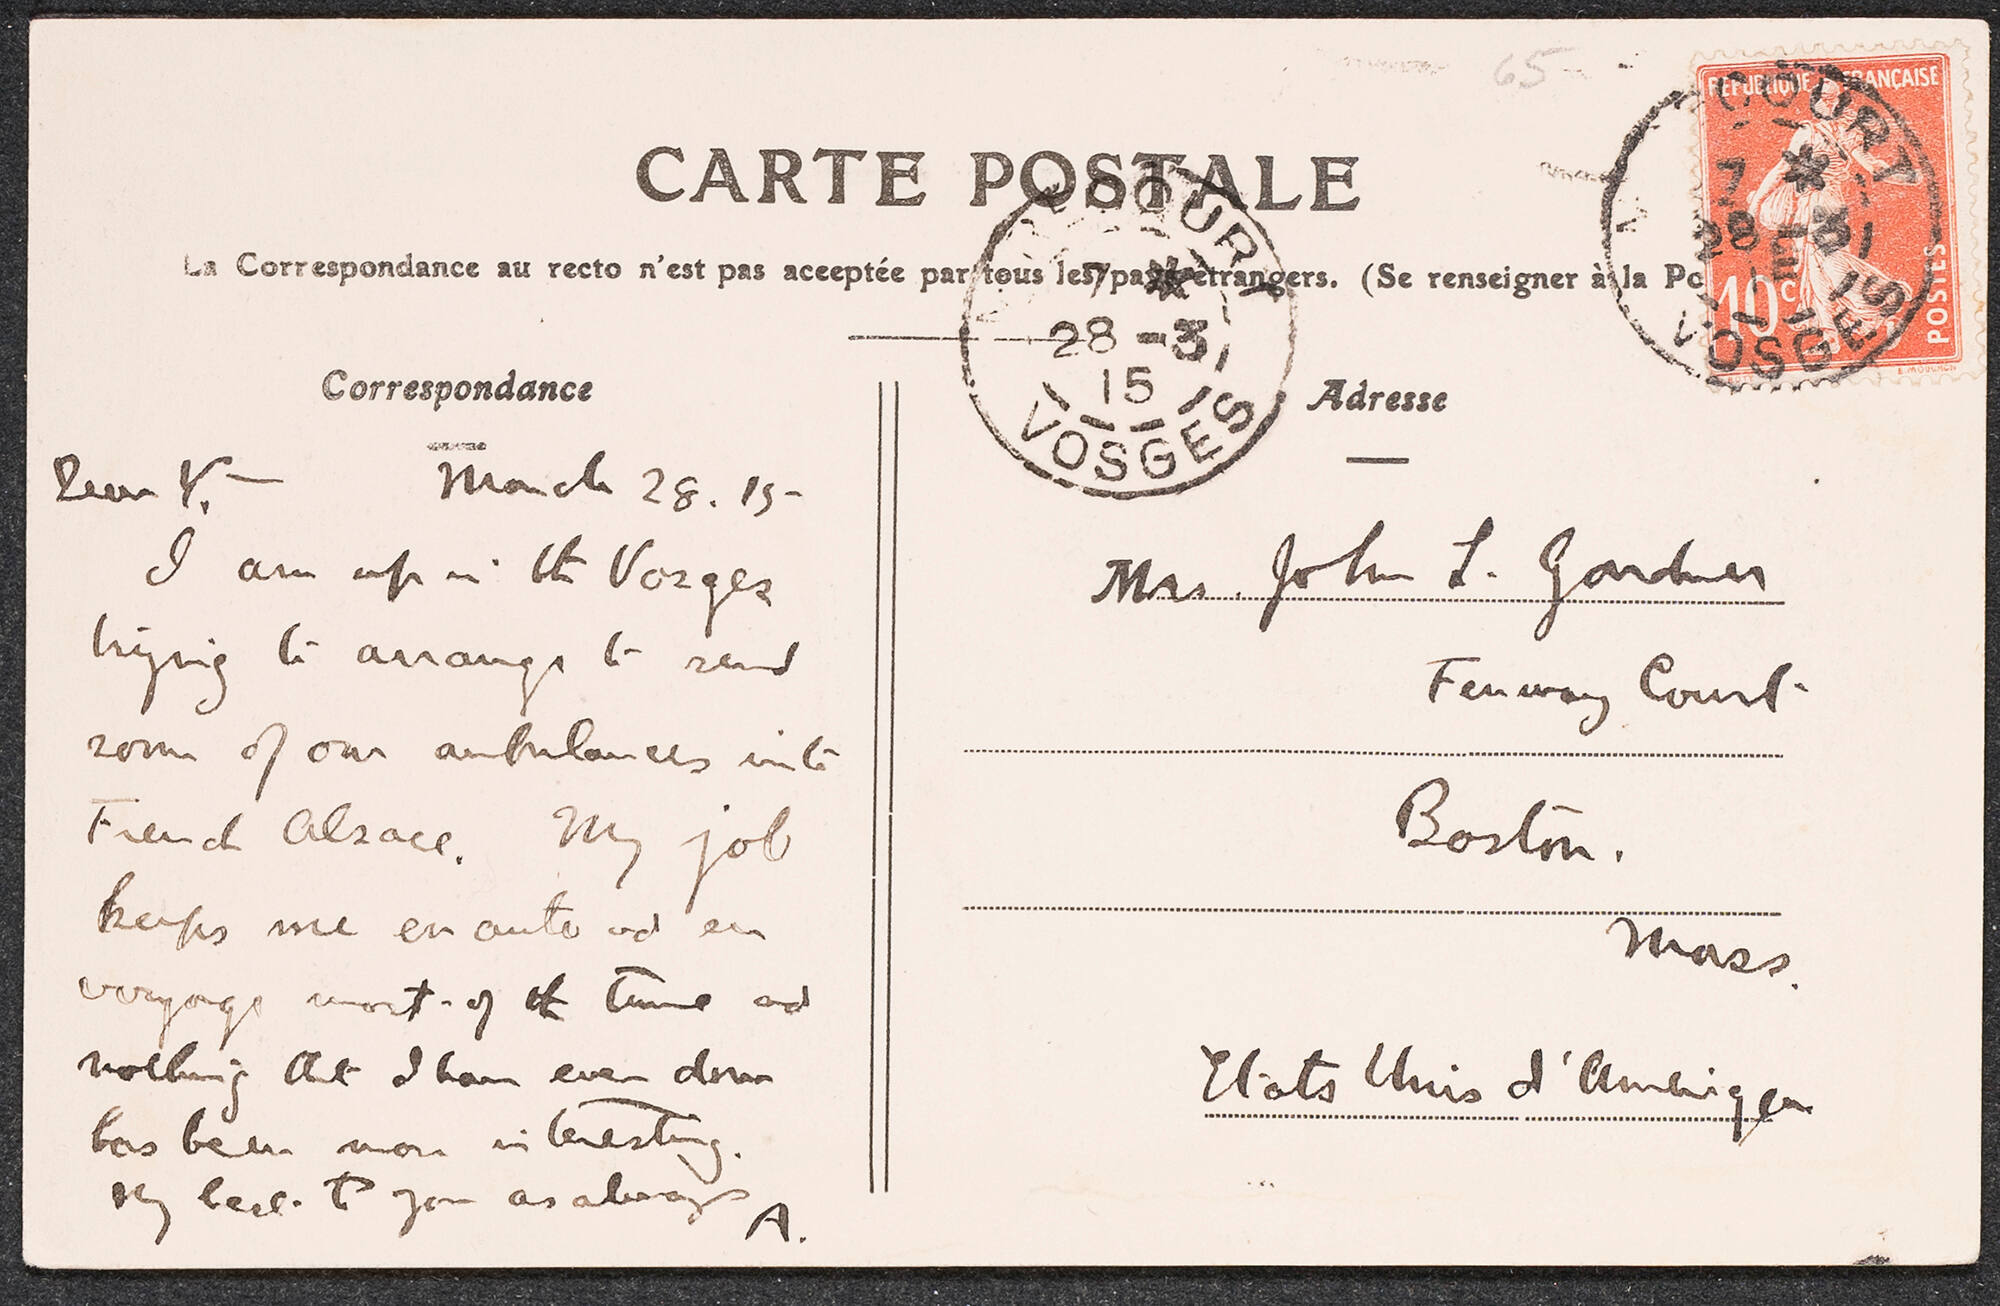 65
CARTE POSTALE
La Correspondance au recto n'est pas aceeptée par tous les pays étrangers. (Se renseigner à la Po
RÉPUBLIQUE FRANÇAISE
10 c
POSTES
E. MOUCHON
COURT
7 *
28 - 3
15
VOSGES
COURT
7 *
28 - 3
15
VOSGES
Correspondance
Dear Y.— March 28. 15-
I am up in the Vosges
trying to arrange to send
some of our ambulances into
French Alsace. My job
keeps me en auto and en
voyage most of the time and
nothing that I have ever done
has been more interesting.
My best to you as always
A.
Adresse
Mrs. John L. Gardner
Fenway Court
Boston.
Mass.
Etats Unis d'Amerique